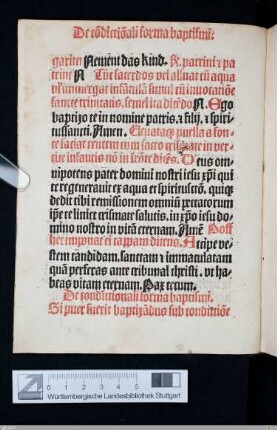 De cōditiōnali forma baptismi.
garitē Nement das kind. R. patrini ⁊ pa
trine N Tūc sacerdos vel assūat cū aqua
vl' immergat infātulū simul cū inuocatiōe
sancte trinitatis, semel ita dicēdo. N. Ego
baptizo te in nomine patris. ⁊ filij. ⁊ spiri-
tussancti. Amen. Eleuatāqz puella a fon-
te faciat cum in sacro crismate in ver-
tice infantis nō in frōte dicēs. Deus om-
nipotens pater domini nostri iesu xp̄i qui
te regenerauit ex aqua et spiritusctō. quiqz
dedit tibi remissionem omniū peccatorum
ip̄e te liniet crismate salutis. in xp̄o iesu do-
mino nostro in vitā eternam. Amē Post
hec imponat ei cappam dicens. Accipe ve-
stem candidam. sanctam ⁊ immaculatam
quā perferas ante tribunal christi. vt ha-
beas vitam eternam. Pax tecum.
De conditionali forma baptismi.
Si puer fuerit baptizādus sub conditiōe
0 1 2 3 4 5
Württembergische Landesbibliothek Stuttgart